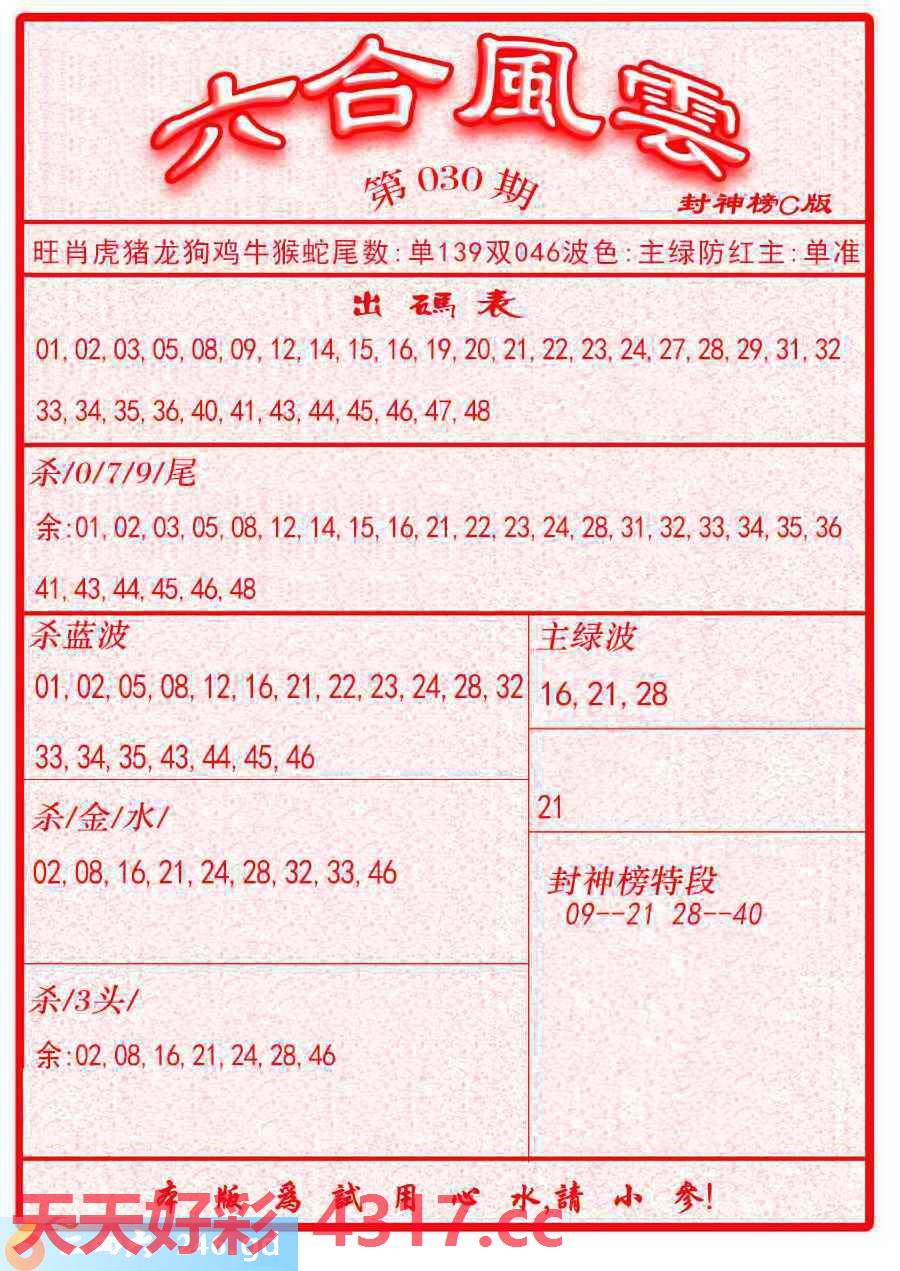 六合風雲
第030期
封神榜C版
旺肖虎猪龙狗鸡牛猴蛇尾数:单139双046波色:主绿防红主:单准
出碼表
01,02,03,05,08,09,12,14,15,16,19,20,21,22,23,24,27,28,29,31,32
33,34,35,36,40,41,43,44,45,46,47,48
杀/0/7/9/尾
余:01,02,03,05,08,12,14,15,16,21,22,23,24,28,31,32,33,34,35,36
41,43,44,45,46,48
杀蓝波
01,02,05,08,12,16,21,22,23,24,28,32
33,34,35,43,44,45,46
主绿波
16,21,28
21
杀/金/水/
02,08,16,21,24,28,32,33,46
封神榜特段
09--21 28--40
杀/3头/
余:02,08,16,21,24,28,46
本版爲試用心水,請小參!
天天好彩 4317.cc
246.gd